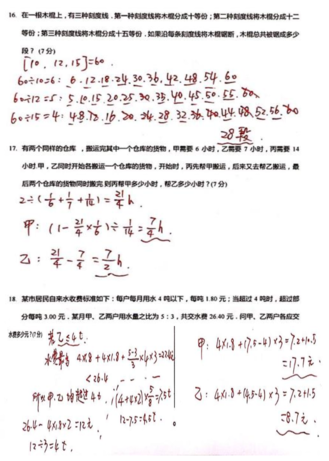 16. 在一根木棍上，有三种刻度线．第一种刻度线将木棍分成十等份；第二种刻度线将木棍分成十二
等份；第三种刻度线将木棍分成十五等份．如果沿每条刻度线将木棍锯断，木棍总共被锯成多少
段？（7 分）
[10，12，15]=60．
60÷10=6：6．12．18．24．30．36．42．48．54．60
60÷12=5：5．10．15．20．25．30．35．40．45．50．55．60
60÷15=4：4．8．12．16．20．24．28．32．36．40．44．48．52．56．60
28段
17. 有两个同样的仓库，搬运完其中一个仓库的货物，甲需要 6 小时，乙需要 7 小时，丙需要 14
小时．甲、乙同时开始各搬运一个仓库的货物，开始时，丙先帮甲搬运，后来又去帮乙搬运，最
后两个仓库的货物同时搬完．则丙帮甲多少小时，帮乙多少小时？(7 分)
2÷(1/6+1/7+1/14)=21/4h．
甲：(1-21/4×1/6)÷1/14=7/4h
乙：21/4-7/4=7/2h
18. 某市居民自来水收费标准如下：每户每月用水 4 吨以下，每吨 1.80 元；当超过 4 吨时，超过部
分每吨 3.00 元．某月甲、乙两户用水量之比为 5：3，共交水费 26.40 元．问甲、乙两户各应交
水费多少元?(7分)
若乙=4t
<26.4
26.4-4×1.8×2=12元
12÷3=4t．
(4+4×2)×5/8=7.5t
12-7.5=4.5t
甲：4×1.8+(7.5-4)×3=7.2+10.5
=17.7元
乙：4×1.8+(4.5-4)×3=7.2+1.5
=8.7元